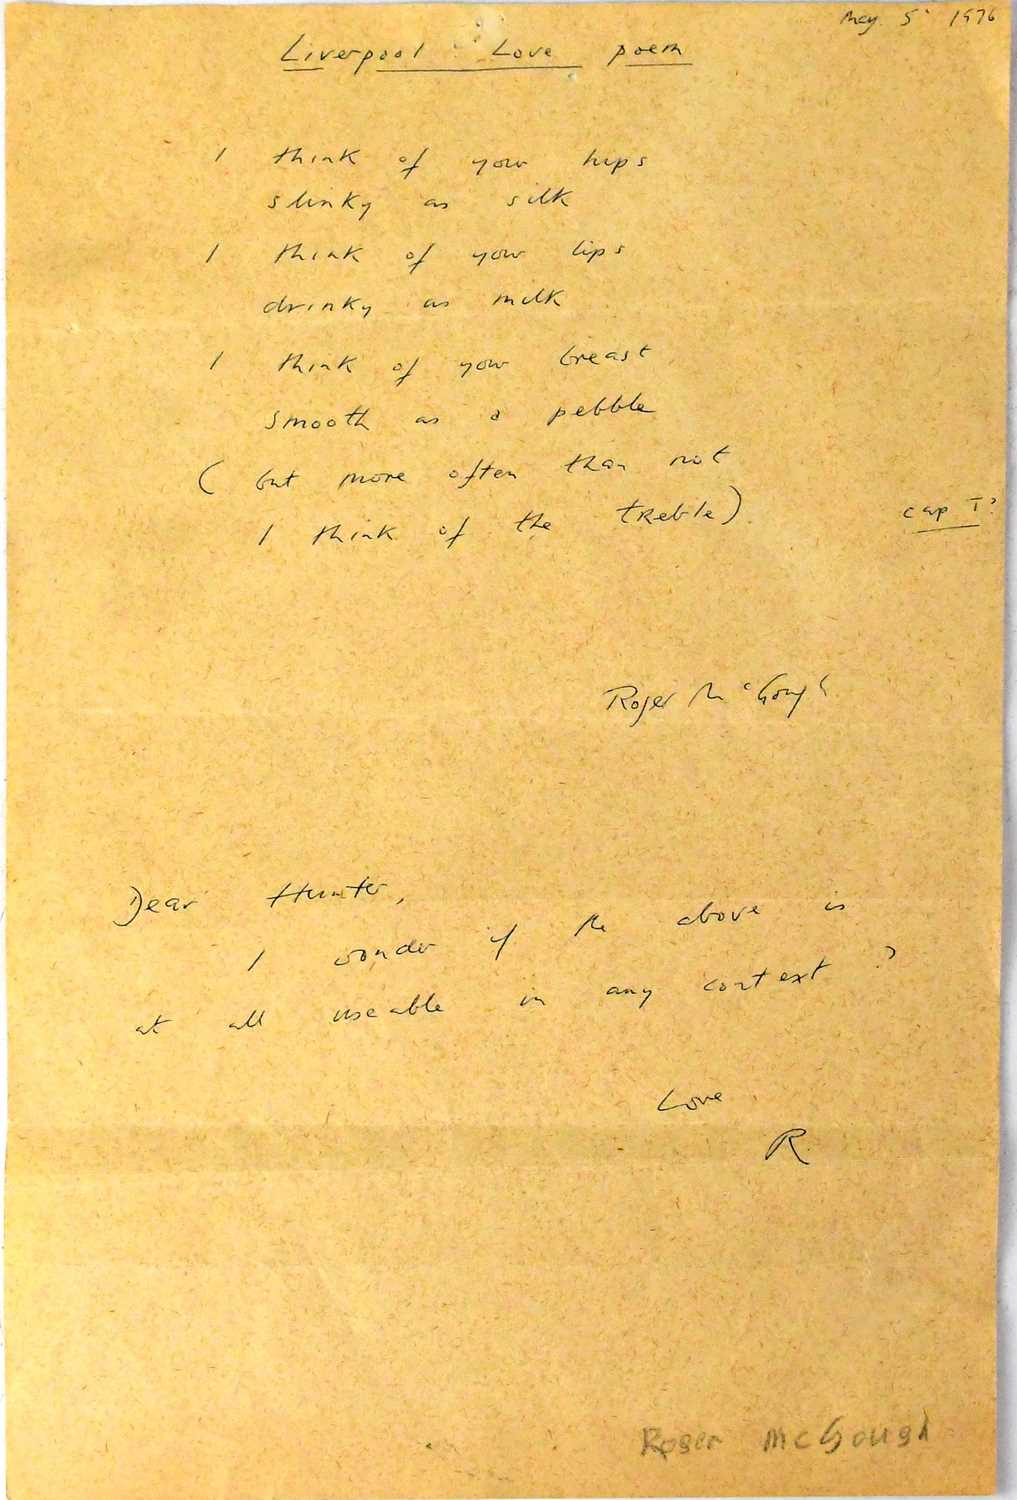 May 5 1976
Liverpool Love poem
I think of your hips
slinky as silk
I think of your lips
drinky as milk
I think of your breast
smooth as a pebble
( but more often than not
I think of the treble)
cap T?
Roger McGough
Dear Hunter,
I wonder if the above is
at all useable in any context?
Love
R.
Roger McGough